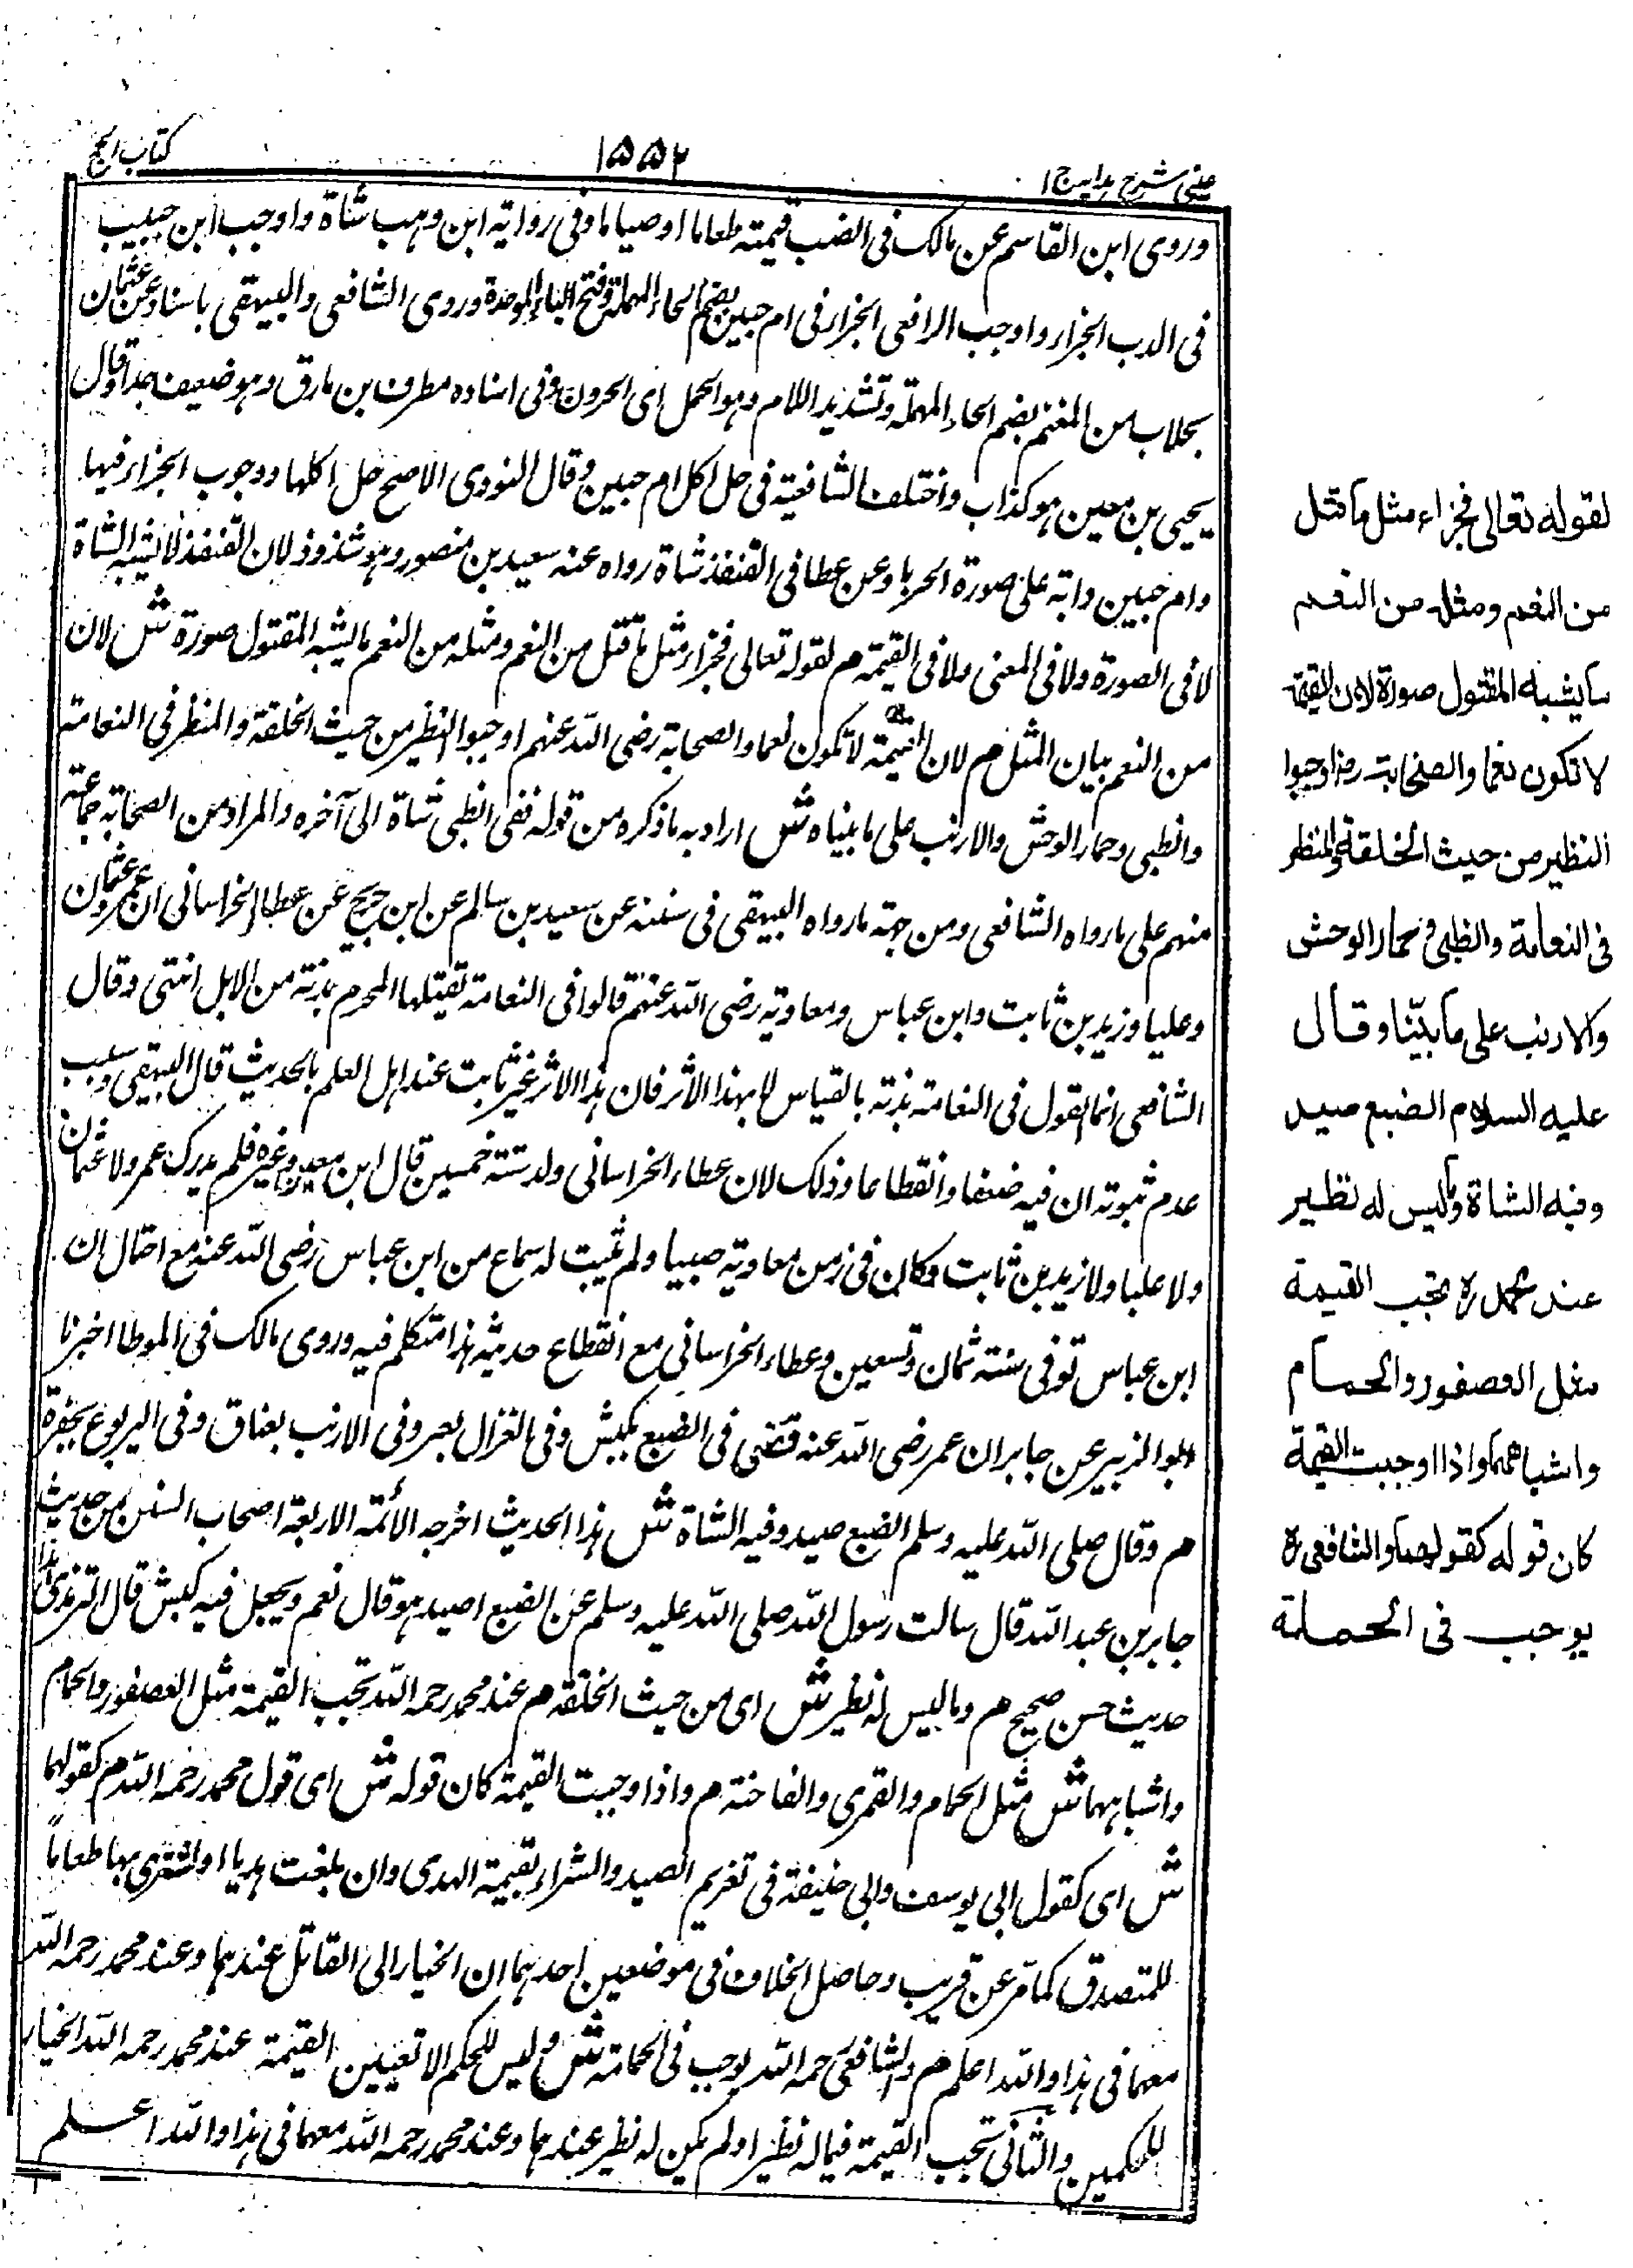 عینی شرح ہدایہ ج۱
۱۵۵۲
کتاب الحج
وروی ابن القاسم عن مالک فی الضب قیمتہ طعاما او صیاما وفی روایۃ ابن وہب شاۃ واوجب ابن حبیب
فی الدب الجزاء واوجب الرافعی الجزاء فی ام حبین بضم الحاء المہملۃ وفتح الباء الموحدۃ وروی الشافعی والبیہقی باسنادہ عن عثمان
بحلاب من الغنم بضم الحاء المہملۃ وتشدید اللام وہو الحمل ای الخروف وفی اسنادہ مطرف بن مازق وہو ضعیف جدا وقال
یحیی بن معین ہو کذاب واختلف الشافعیۃ فی حل اکل ام حبین وقال النووی الاصح حل اکلہا ووجوب الجزاء فیہا
وام حبین دابۃ علی صورۃ الحربا وعن عطا فی القنفذ شاۃ رواہ عنہ سعید بن منصور وہو شذوذ لان القنفذ لا یشبہ الشاۃ
لا فی الصورۃ ولا فی المعنی ولا فی القیمۃ م لقولہ تعالی فجزاء مثل ما قتل من النعم ومثلہ من النعم ما یشبہ المقتول صورۃ ش لان
من النعم بیان المثل م لان القیمۃ لا تکون نعما والصحابۃ رضی اللہ عنہم اوجبوا النظیر من حیث الخلقۃ والمنظر فی النعامۃ
والظبی وحمار الوحش والارنب علی ما بیناہ ش اراد بہ ما ذکرہ من قولہ ففی الظبی شاۃ الی آخرہ والمراد من الصحابۃ جماعۃ
منہم علی ما رواہ الشافعی ومن جہتہ ما رواہ البیہقی فی سننہ عن سعید بن سالم عن ابن جریج عن عطاء الخراسانی ان عمر وعثمان
وعلیا وزید بن ثابت وابن عباس ومعاویۃ رضی اللہ عنہم قالوا فی النعامۃ تقیتلہا المحرم بدنۃ من الابل انتہی وقال
الشافعی انما القول فی النعامۃ بدنۃ بالقیاس لا بہذا الاثر فان ہذا الاثر غیر ثابت عند اہل العلم بالحدیث قال البیہقی وسبب
عدم ثبوتہ ان فیہ ضعفا وانقطاعا وذلک لان عطاء الخراسانی ولد سنۃ خمسین قال ابن معین وغیرہ فلم یدرک عمر ولا عثمان
ولا علیا ولا زید بن ثابت فکان فی زمن معاویۃ صبیا ولم یثبت لہ سماع من ابن عباس رضی اللہ عنہ مع احتمال ان
ابن عباس توفی سنۃ ثمان وتسعین وعطاء الخراسانی مع انقطاع حدیثہ ہذا متکلم فیہ وروی مالک فی الموطا اخبرنا
ابو الزبیر عن جابر ان عمر رضی اللہ عنہ قضی فی الضبع بکبش وفی الغزال بعیر وفی الارنب بعناق وفی الیربوع بجفرۃ
م وقال صلی اللہ علیہ وسلم الضبع صید وفیہ الشاۃ ش ہذا الحدیث اخرجہ الائمۃ الاربعۃ اصحاب السنن من حدیث
جابر بن عبد اللہ قال سالت رسول اللہ صلی اللہ علیہ وسلم عن الضبع اصید ہو قال نعم ویجعل فیہ کبش قال الترمذی ہذا
حدیث حسن صحیح م وما لیس لہ نظیر ش ای من حیث الخلقۃ م عند محمد رحمہ اللہ تجب القیمۃ مثل العصفور والحمام
واشباہہما ش مثل الحمام والقمری والفاختۃ م واذا وجبت القیمۃ کان قولہ ش ای قول محمد رحمہ اللہ م کقولہما
ش ای کقول ابی یوسف وابی حنیفۃ فی تغریم الصید والشراء بقیمۃ الہدی وان بلغت ہدیا او اشتری بہا طعاماً
للمتصدق کما مر عن قریب وحاصل الخلاف فی موضعین احدہما ان الخیار الی القاتل عندہما وعند محمد رحمہ اللہ
معہما فی ہذا واللہ اعلم م والشافعی رحمہ اللہ یوجب فی الحمامۃ ش ولیس للحکم الا تعیین القیمۃ عند محمد رحمہ اللہ الخیار
للحکمین والثانی تجب القیمۃ فیما لہ نظیر او لم یکن لہ نظیر عندہما وعند محمد رحمہ اللہ معہما فی ہذا واللہ اعلم
لقولہ تعالی فجزاء مثل ما قتل
من النعم ومثلہ من النعم
ما یشبہ المقتول صورۃ لان القیمۃ
لا تکون نعما والصحابۃ رض اوجبوا
النظیر من حیث الخلقۃ والمنظر
فی النعامۃ والظبی وحمار الوحش
والارنب علی ما بیّنا وقال
علیہ السلام الضبع صید
وفیہ الشاۃ وما لیس لہ نظیر
عند محمد رہ تجب القیمۃ
مثل العصفور والحمام
واشباھہما واذا اوجبت القیمۃ
کان قولہ کقولہما والشافعی رہ
یوجب فی الحمامۃ